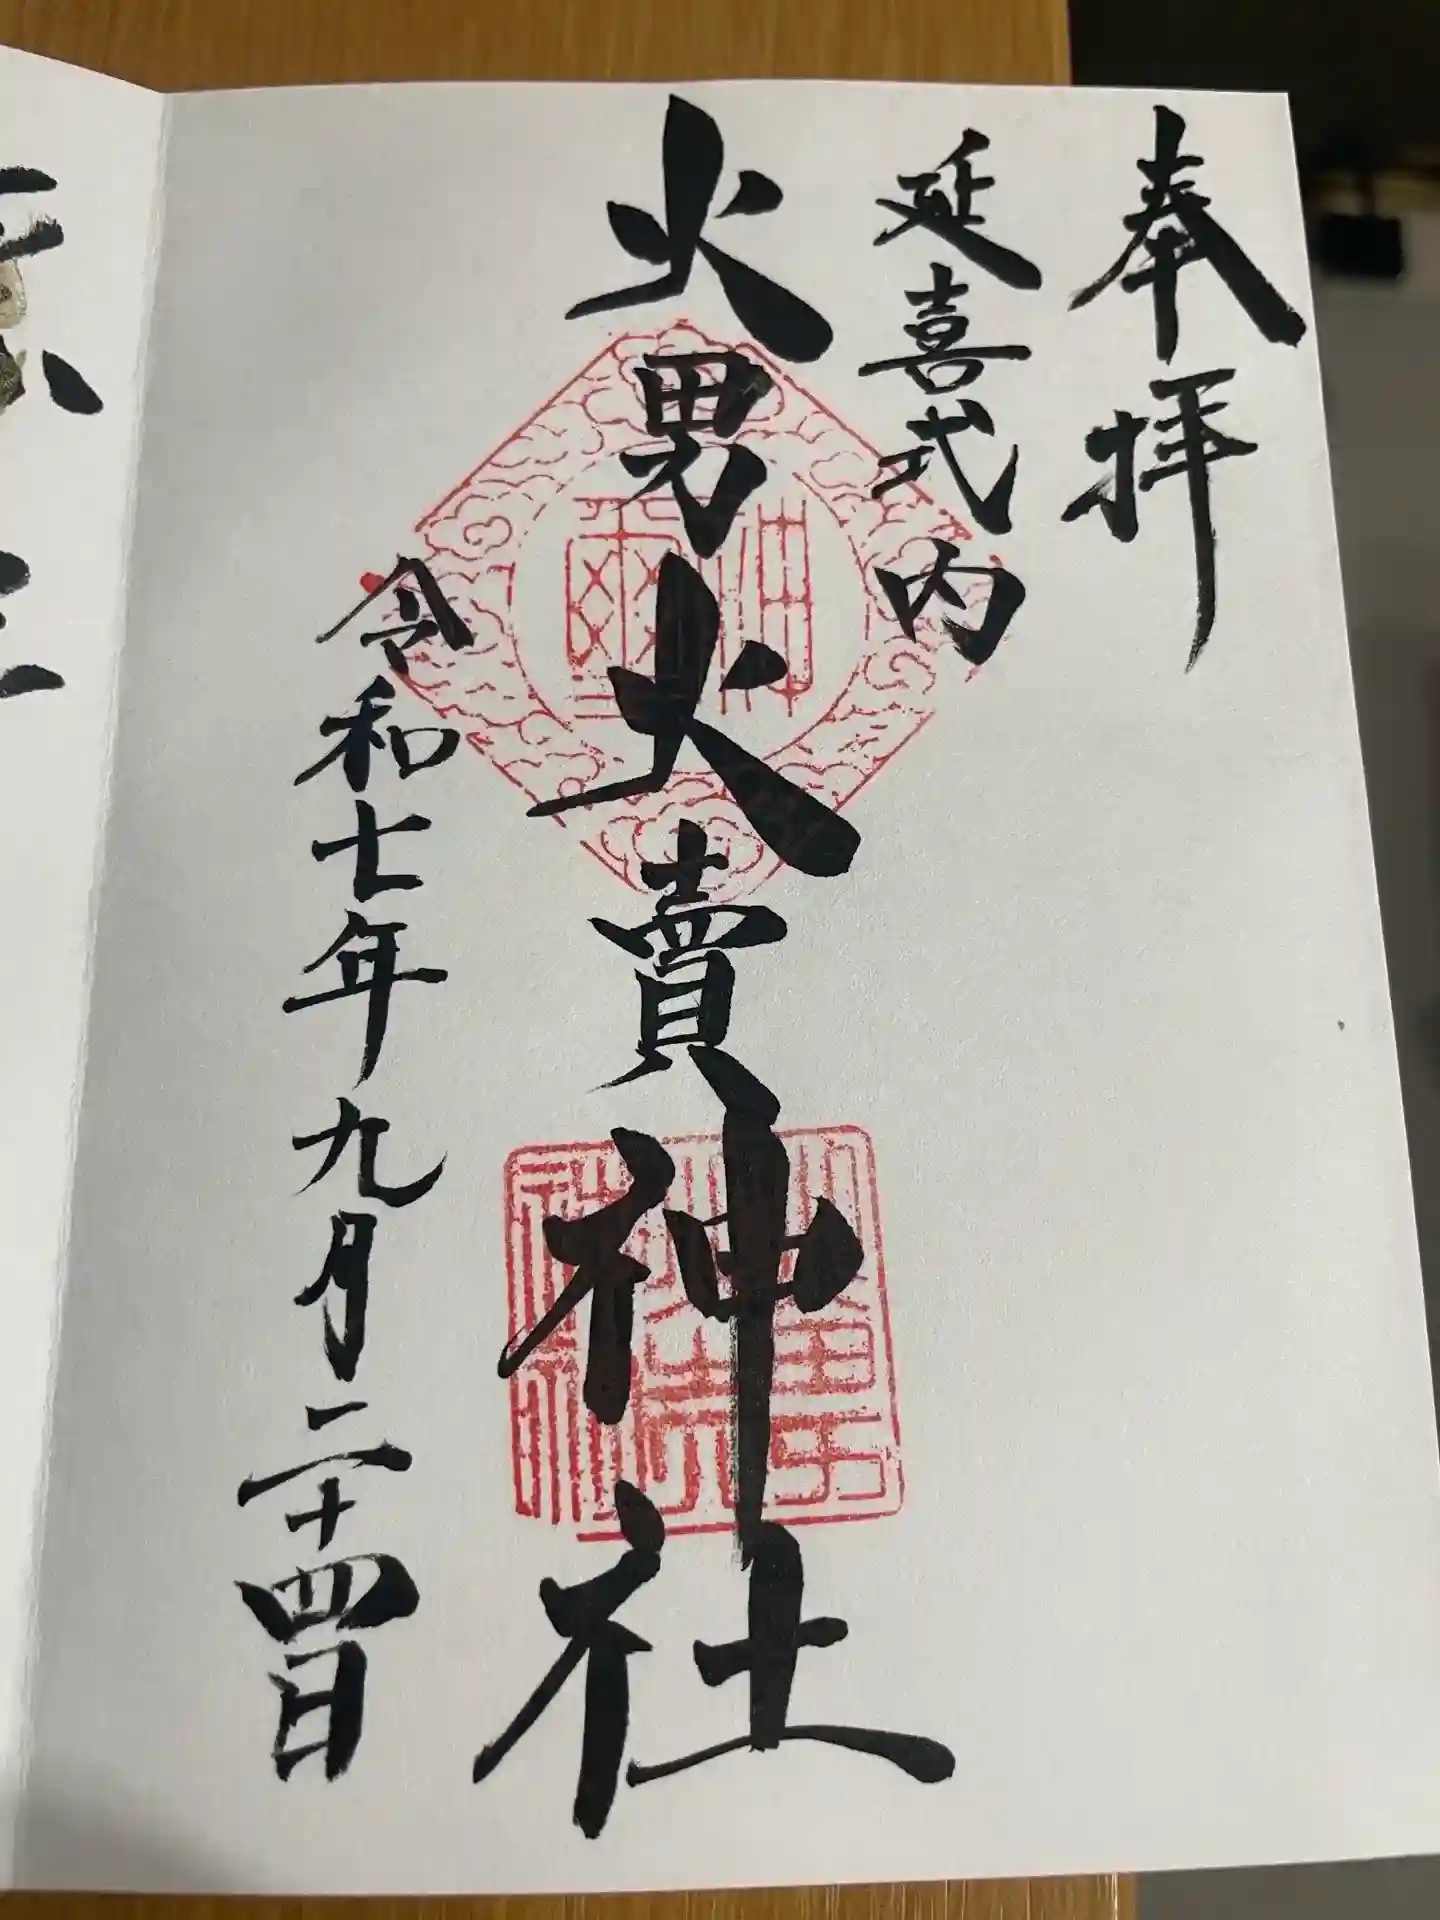 奉拝
延喜式内
火男火賣神社
令和七年九月二十四日